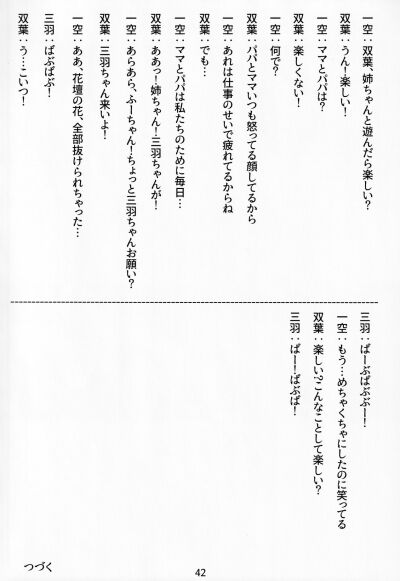 一空：双葉、姉ちゃんと遊んだら楽しい？
双葉：うんー楽しい！
一空：ママとパパは？
双葉：楽しくない！
一空：何で？
双葉：パパとママいつも怒ってる顔してるから
一空：あれは仕事のせいで疲れてるからね
双葉：でも…
一空：ママとパパは私たちのために毎日…
双葉：ああっ！姉ちゃん！三羽ちゃんが！
一空：あらあら、ふーちゃん！ちょっと三羽ちゃんお願い？
双葉：三羽ちゃん来いよ！
一空：ああ、花壇の花、全部抜けられちゃった…
三羽：ばぶばぶ！
双葉：う…こいつ！
三羽：ばーぶばぶぶー！
一空：もう…めちゃくちゃにしたのに笑ってる
双葉：楽しい？こんなことして楽しい？
三羽：ばー！ばぶば！
つづく
42